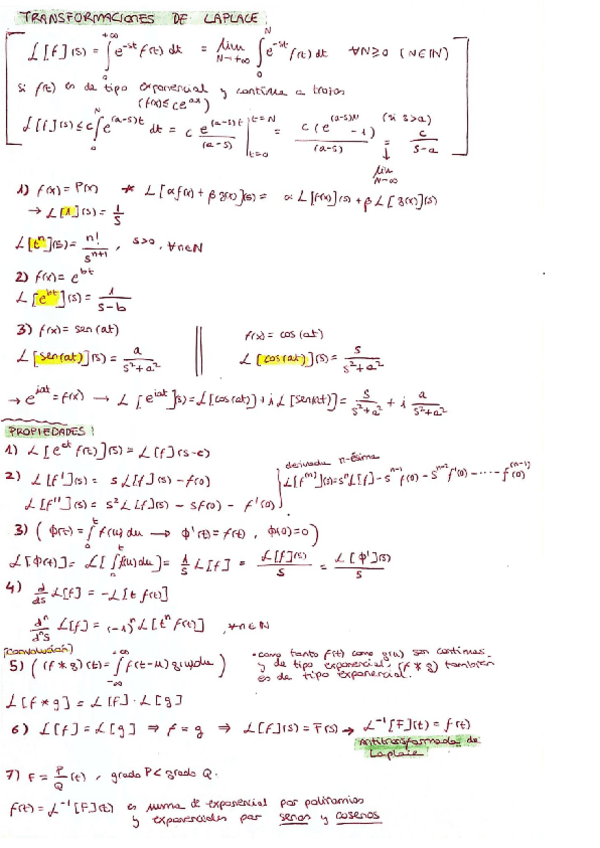 TRANSFORMACIONES DE LAPLACE:
L[f](s) = ∫₀^{+∞} e^{-st} f(t) dt = lim_{N→+∞} ∫₀^N e^{-st} f(t) dt ∀N≥0 (N∈ℕ)
si f(t) es de tipo exponencial y continua a trozos
(f(x) ≤ ce^{ax})
L[f](s) ≤ c∫₀^N e^{(a-s)t} dt = c e^{(a-s)t}/(a-s) |_{t=0}^{t=N} = c(e^{(a-s)N} - 1)/(a-s) = (si s>a) c/(s-a)
lim N→∞
1) f(x) = P(x) * L[αf(x) + βg(x)](s) = αL[f(x)](s) + βL[g(x)](s)
→ L[1](s) = 1/s
L[tⁿ](s) = n!/s^{n+1}, s>0, ∀n∈N
2) f(x) = e^{bt}
L[e^{bt}](s) = 1/(s-b)
3) f(x) = sen(at) || f(x) = cos(at)
L[sen(at)](s) = a/(s²+a²) || L[cos(at)](s) = s/(s²+a²)
→ e^{iat} = f(x) → L[e^{iat}](s) = L[cos(at)] + iL[sen(at)] = s/(s²+a²) + i a/(s²+a²)
PROPIEDADES:
1) L[e^{ct} f(t)](s) = L[f](s-c)
2) L[f'](s) = sL[f](s) - f(0)
derivada n-ésima
L[f^{(n)}](s) = sⁿL[f] - s^{n-1}f(0) - s^{n-2}f'(0) - ... - f^{(n-1)}(0)
L[f''](s) = s²L[f](s) - sf(0) - f'(0)
3) (ϕ(t) = ∫₀^t f(u)du → ϕ'(t) = f(t), ϕ(0)=0)
L[ϕ(t)] = L[∫₀^t f(u)du] = 1/s L[f] = L[f](s)/s = L[ϕ'](s)/s
4) d/ds L[f] = -L[t f(t)]
dⁿ/dⁿs L[f] = (-1)ⁿ L[tⁿ f(t)], ∀n∈N
(convolución)
5) ((f * g)(t) = ∫_{-∞}^{+∞} f(t-u) g(u)du)
•como tanto f(t) como g(u) son continuas
y de tipo exponencial, (f * g) también
es de tipo exponencial.
L[f * g] = L[f] · L[g]
6) L[f] = L[g] ⇒ f = g ⇒ L[f](s) = F(s) → L⁻¹[F](t) = f(t)
Antitransformada de
Laplace
7) F = P/Q (t), grado P < grado Q.
f(t) = L⁻¹[F](t) es suma de exponencial por polinomios
y exponenciales por senos y cosenos